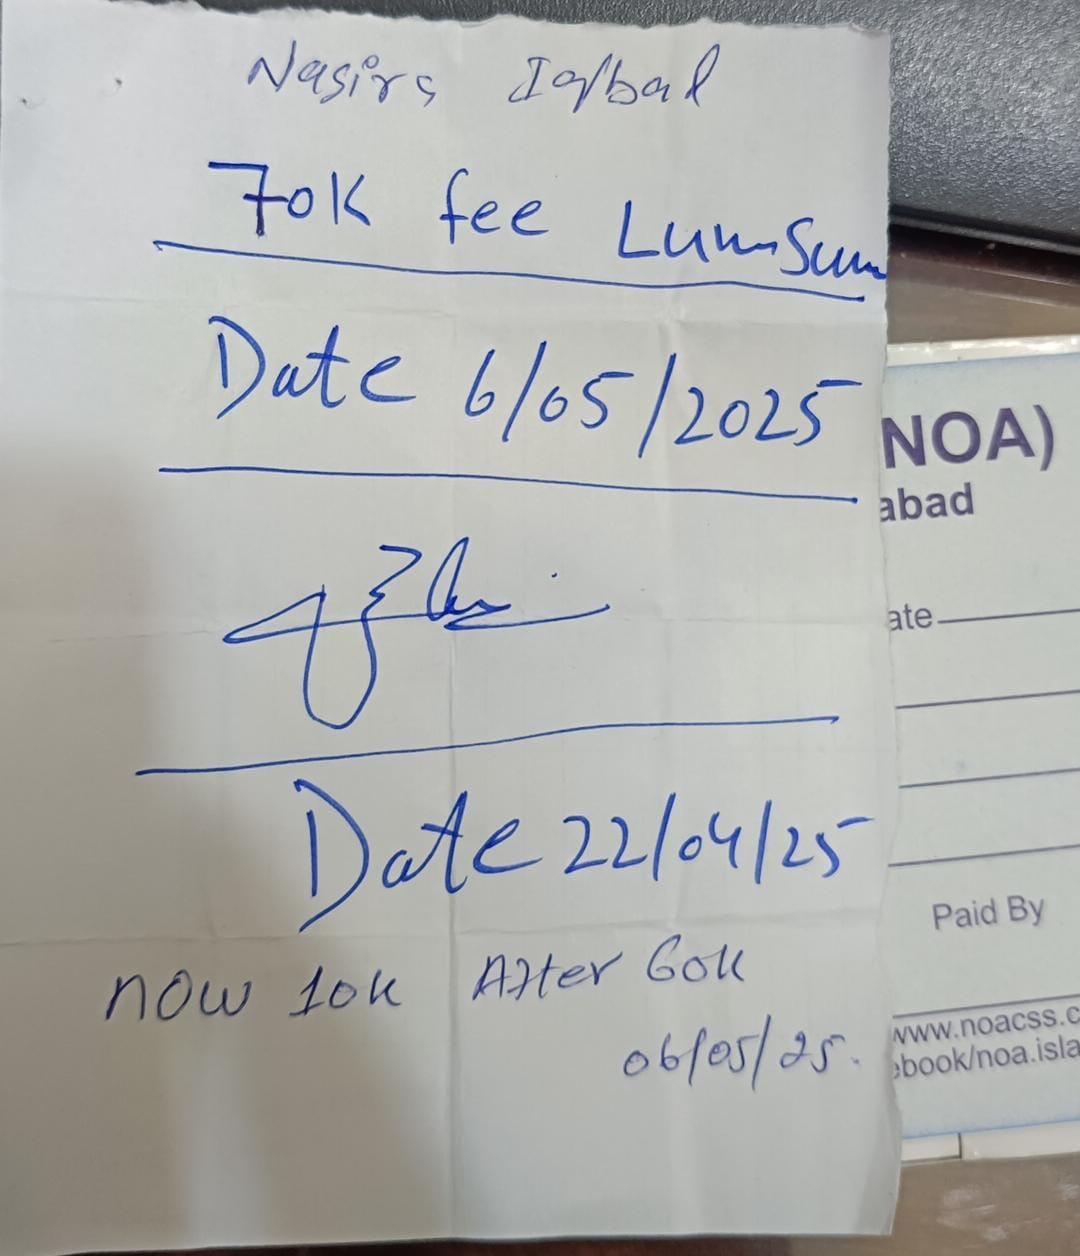 Nasirs Iqbal
70K fee LumSum
Date 6/05/2025
Date 22/04/25
now 10k After 60k
06/05/25.
NOA)
abad
ate
Paid By
www.noacss.c
ebook/noa.isla